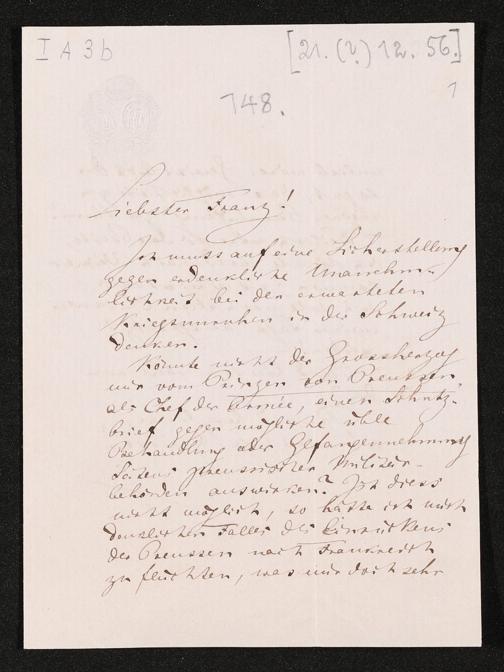 I A 3b
[21. (?) 12. 56.]
748.
1
Liebster Franz!
Ich muss auf eine Sicherstellung
gegen erdenkliche Unannehm-
lichkeit bei den erwarteten
Kriegsunruhen in der Schweiz
denken.
Könnte nicht der Grossherzog
mir vom Prinzen von Preussen,
als Chef der Armée, einen Schutz-
brief gegen mögliche üble
Behandlung oder Gefangennehmung
Seitens preussischer Militär-
behörden auswirken? Ist diess
nicht möglich, so hätte ich mich
denklichen Falles des Einrückens
der Preussen nach Frankreich
zu flüchten, was mir doch sehr